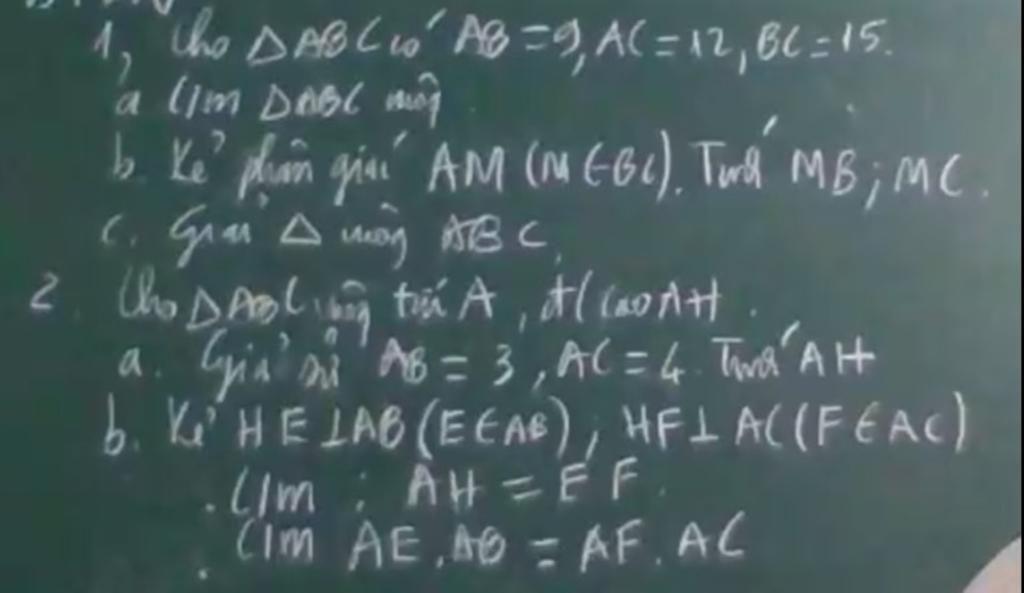 1, Cho △ABC có AB = 9, AC = 12, BC = 15.
a C/m △ABC vuông
b. Kẻ phân giác AM (M ∈ BC). Tính MB; MC.
c. Giải △ vuông ABC
2. Cho △ABC vuông tại A, đ/c cao AH.
a. Giả sử AB = 3, AC = 4. Tính AH
b. Kẻ HE ⊥ AB (E ∈ AB), HF ⊥ AC (F ∈ AC)
. C/m : AH = EF.
. C/m AE . AB = AF . AC